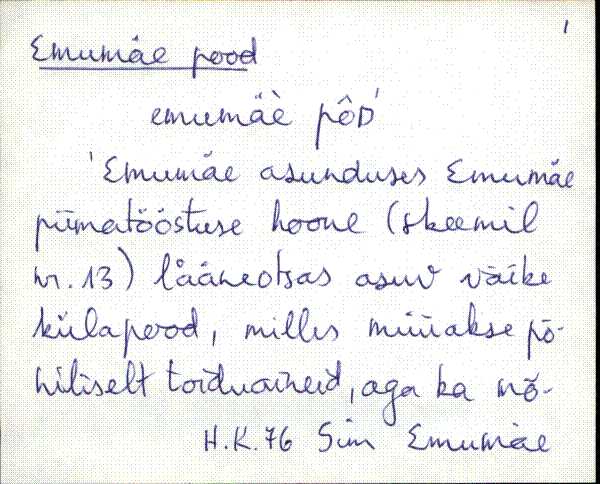 1
Emumäe pood
emumäè pôD'
'Emumäe asunduses Emumäe
piimatööstuse hoone (skeemil
nr. 13) lääneotsas asuv väike
külapood, milles müüakse põ-
hiliselt toiduaineid, aga ka mõ-
H.K.76 Sim Emumäe